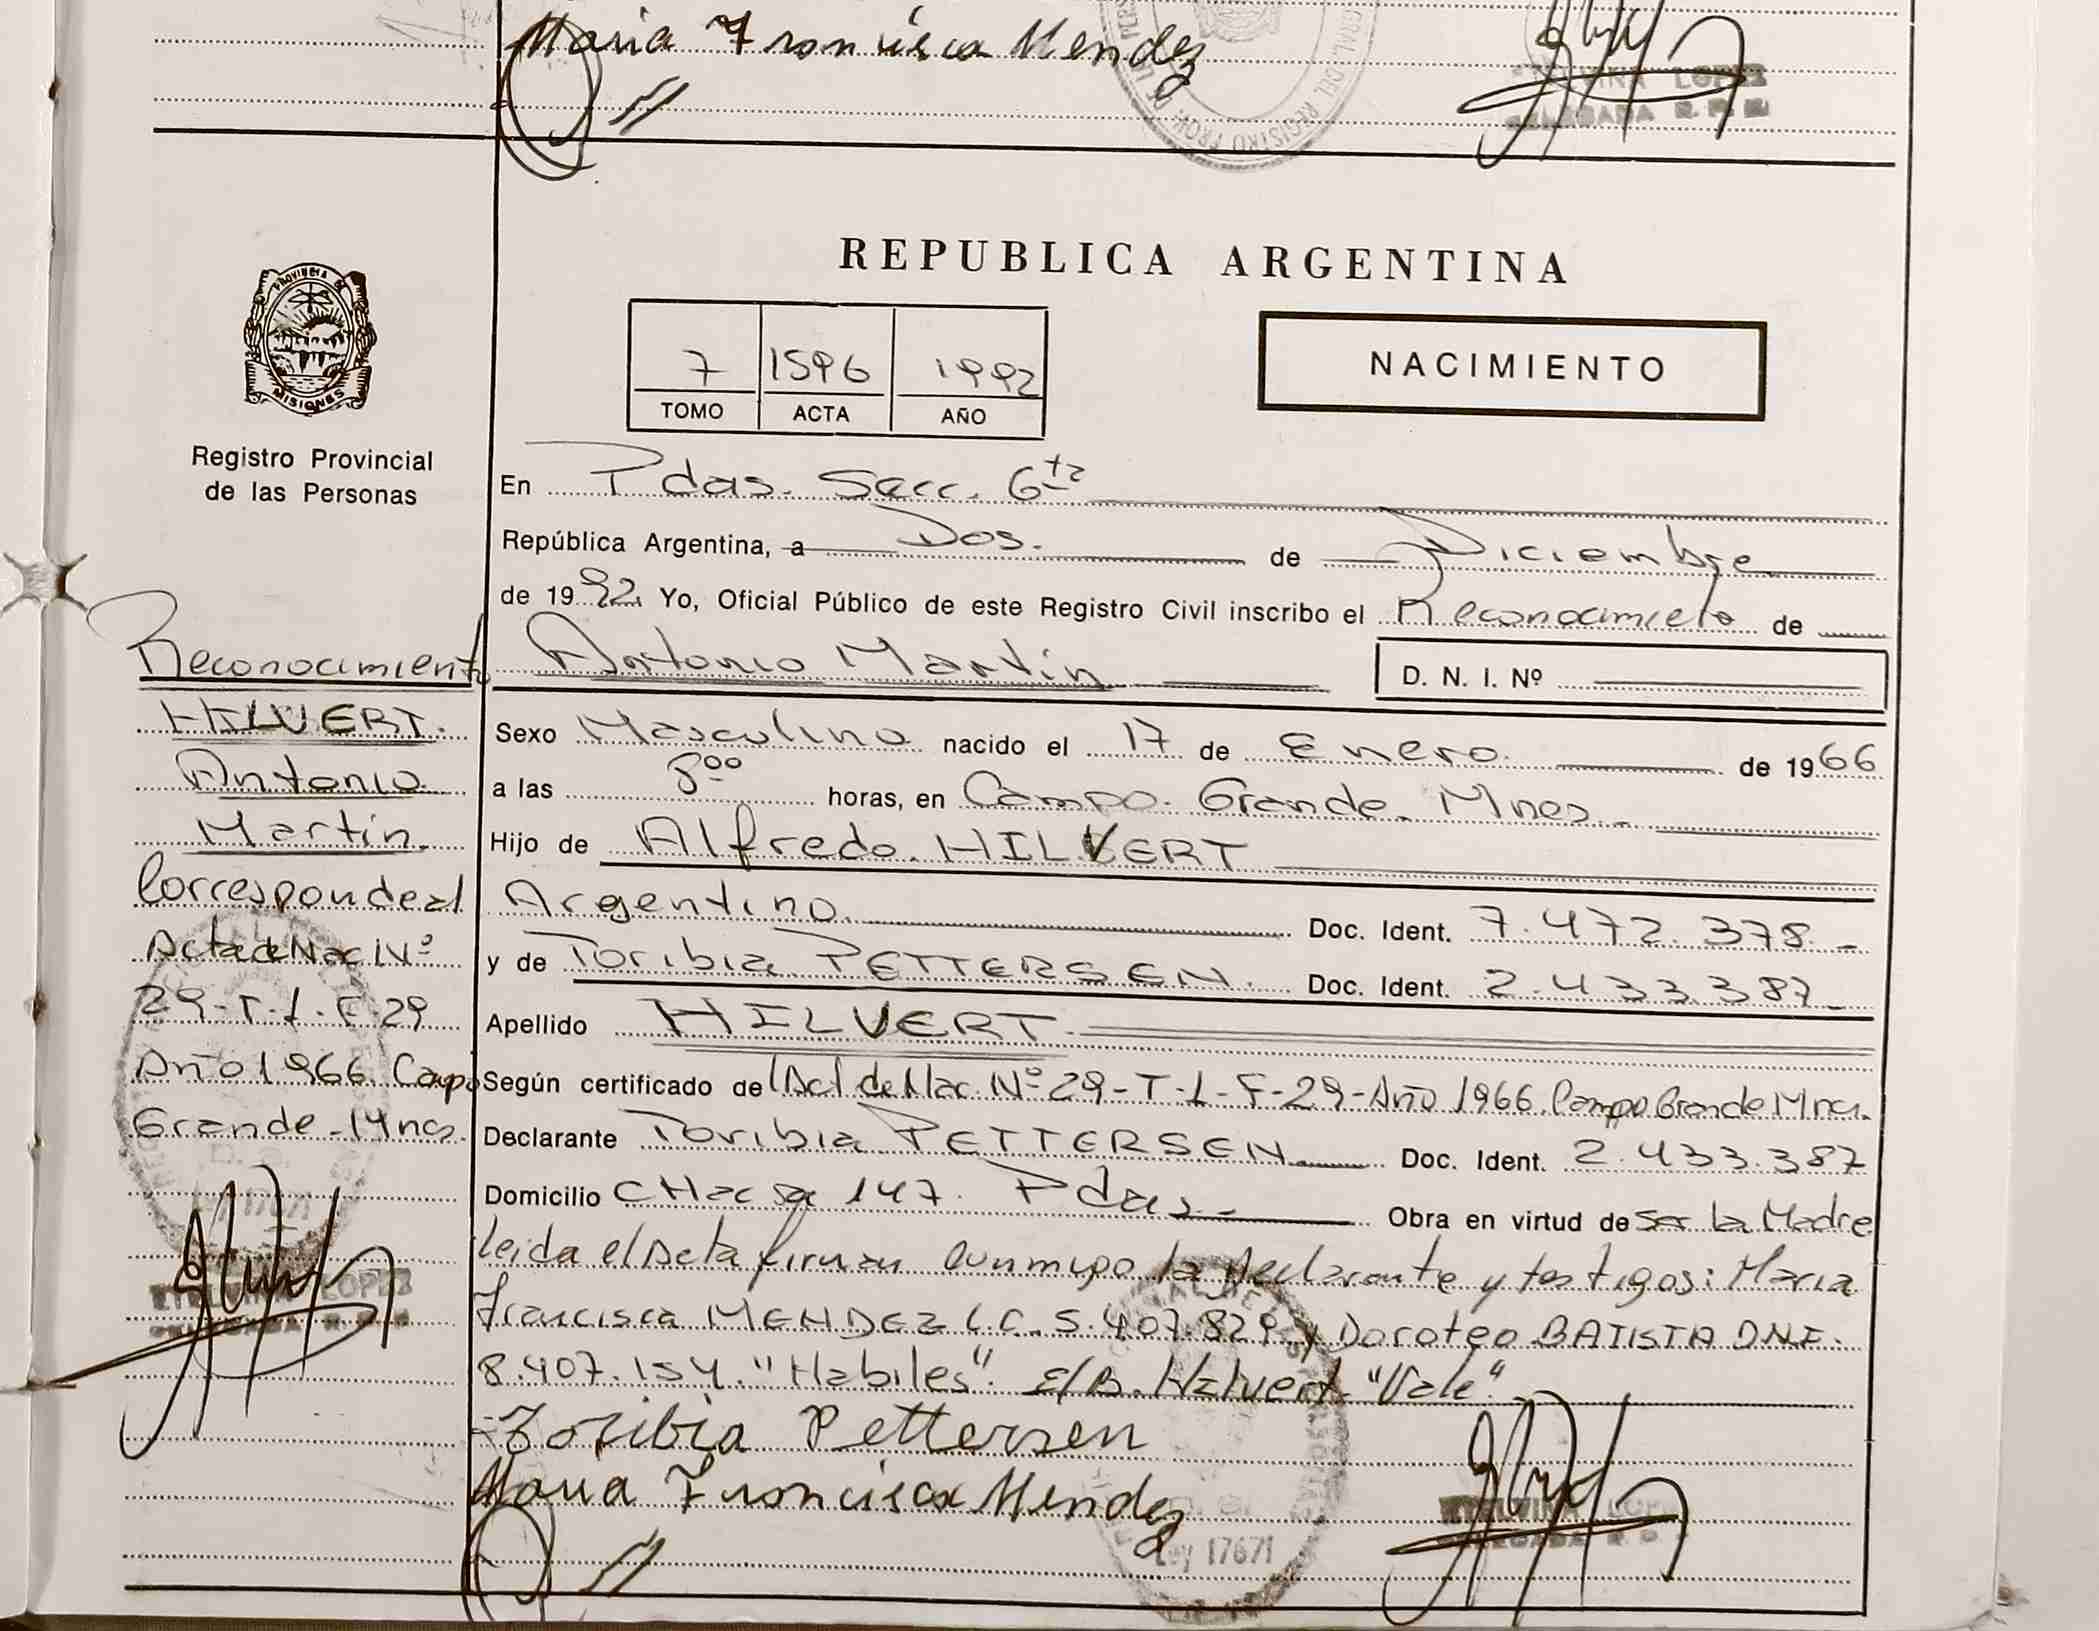 Maria Francisca Mendez
LOPEZ
REPUBLICA ARGENTINA
PROVINCIA DE
MISIONES
Registro Provincial
de las Personas
7 1596 1992
TOMO ACTA AÑO
NACIMIENTO
En Pdas. Secc. 6ta
República Argentina, a Dos. de Diciembre
de 1992. Yo, Oficial Público de este Registro Civil inscribo el Reconocimieto de
Antonio Martín D. N. I. Nº
Sexo Masculino nacido el 17 de Enero. de 1966
a las 8oo horas, en Campo. Grande. Mnes.
Hijo de Alfredo. HILVERT
Argentino. Doc. Ident. 7.472.378.-
y de Toribia PETTERSEN. Doc. Ident. 2.433.387-
Apellido HILVERT.
Según certificado de Act. de Nac. Nº 29-T-1-F-29-Año 1966. Campo Grande Mnes.
Declarante Toribia PETTERSEN. Doc. Ident. 2.433.387
Domicilio CHacra 147. Pdas. Obra en virtud de ser la Madre
leida el Acta firman conmigo la declarante y testigos: Maria
Francisca MENDEZ L.C. 5.407.829 y Doroteo BATISTA D.N.I.
8.407.154. "Habiles". E/B. Hilvert. "Vale".
Toribia Pettersen
Maria Francisca Mendez
Ley 17671
Reconocimiento
HILVERT.
Antonio
Martín.
Corresponde al
Acta de Nac Nº
29-T-1-F-29
Año 1966. Campo
Grande-Mnes.
ETELVINA LOPEZ
DELEGADA R. P.